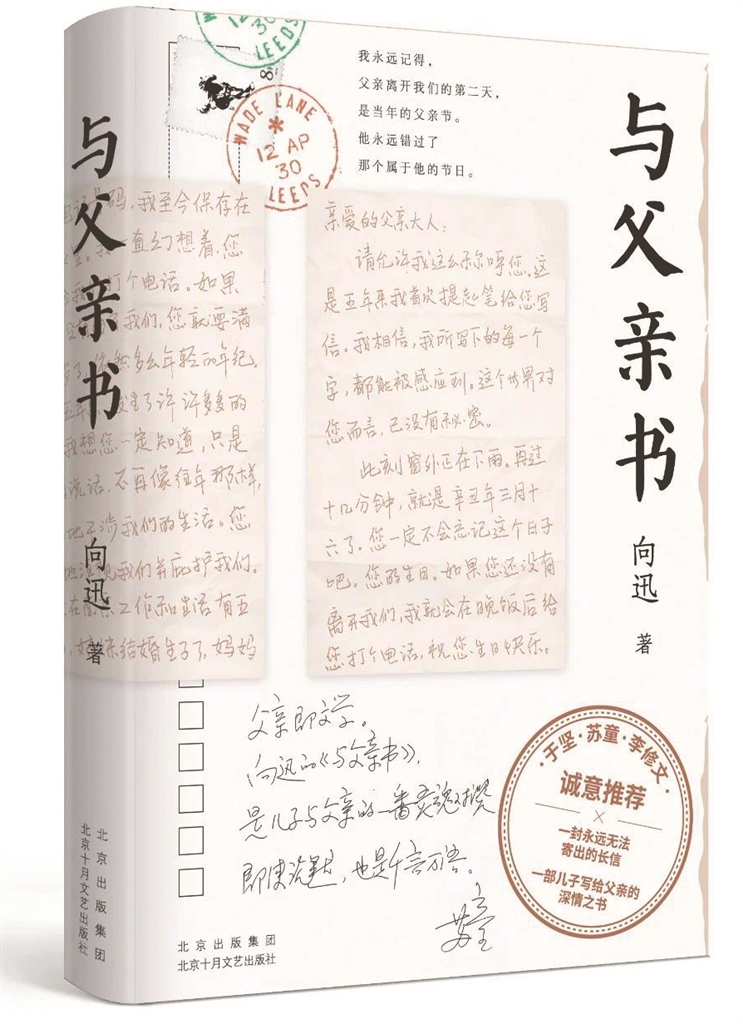 与父亲书
向迅
著
北京出版集团
北京十月文艺出版社
12 AP
30
LEEDS
8
WADE LANE
12 AP
30
LEEDS
我永远记得，
父亲离开我们的第二天，
是当年的父亲节。
他永远错过了
那个属于他的节日。
号码，我至今保存在
直幻想着，您
打个电话。如果
了我们，您就要满
多么年轻的年纪，
生了许许多多的
我想您一定知道，只是
说话，不再像往年那样，
地干涉我们的生活。您
我们并庇护我们。
工作和生活有五
结婚生子了，妈妈
亲爱的父亲大人：
请允许我这么称呼您。这
是五年来我首次提起笔给您写
信。我相信，我所写下的每一个
字，都能被感应到。这个世界对
您而言，已没有秘密。
此刻窗外正在下雨。再过
十几分钟，就是辛丑年三月十
六了。您一定不会忘记这个日子
吧。您的生日。如果您还没有
离开我们，我就会在晚饭后给
您打个电话，祝您生日快乐。
与父亲书
向迅
著
父亲即文学。
向迅的《与父亲书》，
是儿子与父亲的一番灵魂对谈
即使沉默，也是千言万语。
苏童
·于坚·苏童·李修文·
诚意推荐
一封永远无法
寄出的长信
一部儿子写给父亲的
深情之书
北京出版集团
北京十月文艺出版社